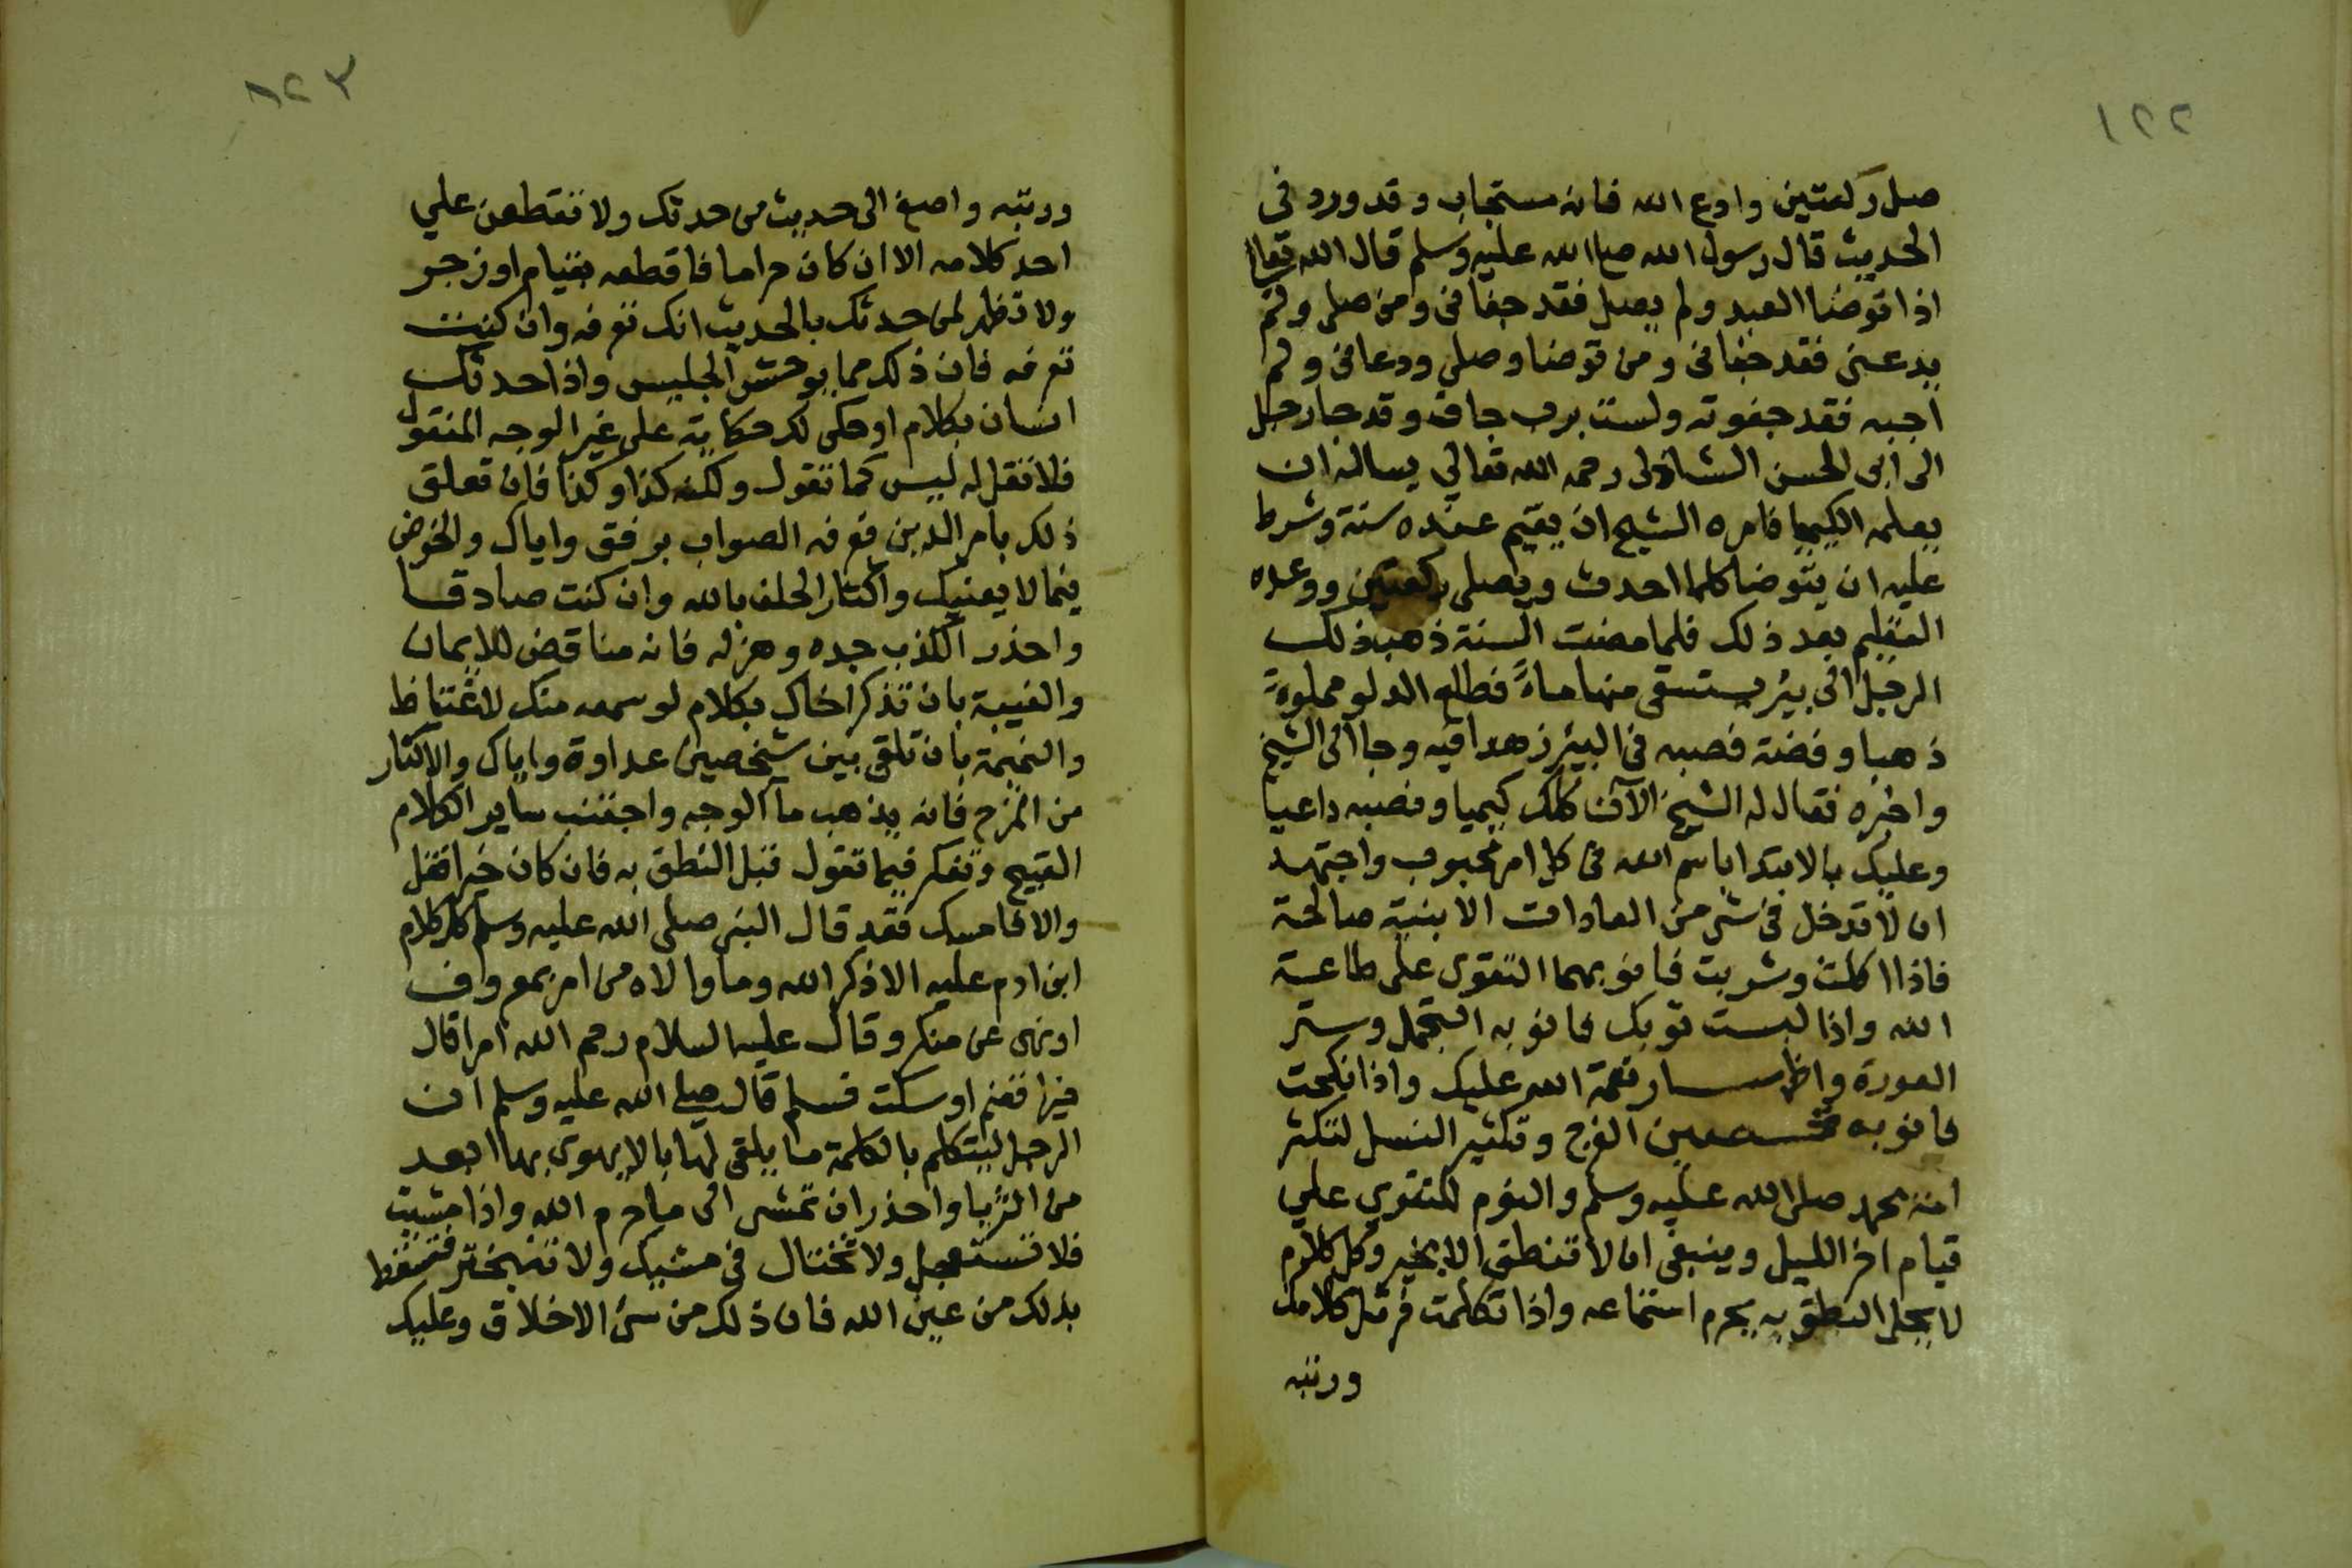 ١٢٢
صل ركعتين وادع الله فانه مستجاب وقد ورد في
الحديث قال رسول الله صلى الله عليه وسلم قال الله تعالى
اذا توضا العبد ولم يصل فقد جفاني ومن صلى ولم
يدعني فقد جفاني ومن توضا وصلى ودعاني ولم
اجبه فقد جفوته ولست برب جاف وقد جا رجل
الى ابى الحسن الشاذلى رحمه الله تعالي يساله ان
يعلمه الكيميا فامره الشيخ ان يقيم عنده سنة وشرط
عليه ان يتوضا كلما احدث ويصلى ركعتين ووعده
التعليم بعد ذلك فلما مضت السنة ذهب ذلك
الرجل الى بير يستسقى منها ماء فطلع الدلو مملوة
ذهبا وفضة فصبه في البير زهدا فيه وجا الى الشيخ
واخبره فقال له الشيخ الآن كلك كيميا ونصبه داعيا
وعليك بالابتدا باسم الله في كل امر محبوب واجتهد
ان لا تدخل في شي من العادات الا بنية صالحة
فاذا اكلت وشربت فانو بهما التقوى على طاعة
الله واذا لبست ثوبك فانو به التجمل وستر
العورة واظهار نعمة الله عليك واذا نكحت
فانو به تحصين الفرج وتكثير النسل لتكثر
امة محمد صلى الله عليه وسلم والنوم للتقوي علي
قيام اخر الليل وينبغي ان لا تنطق الا بخير وكل كلام
لا يحل النطق به يحرم استماعه واذا تكلمت فرتل كلامك
ورتبه
١٢٣
ورتبه واصغ الى حديث من حدثك ولا تقطعن علي
احد كلامه الا ان كان حراما فاقطعه بقيام او زجر
ولا تظهر لمن حدثك بالحديث انك تعرفه وان كنت
تعرفه فان ذلك مما يوحش الجليس واذا حدثك
انسان بكلام او حكى لك حكاية على غير الوجه المنقول
فلا تقل له ليس كما تقول ولكنه كذا وكذا فان تعلق
ذلك بامر الدين فعرفه الصواب برفق واياك والخوض
فيما لا يعنيك واكثار الحلف بالله وان كنت صادقا
واحذر الكذب جده وهزله فانه مناقض للايمان
والغيبة بان تذكر اخاك بكلام لو سمعه منك لاغتاظ
والنميمة بان تلقي بين شخصين عداوة واياك والاكثار
من المزح فانه يذهب مآ الوجه واجتنب ساير الكلام
القبيح وتفكر فيما تقول قبل النطق به فان كان خيرا فقل
والا فامسك فقد قال النبي صلى الله عليه وسلم كل كلام
ابن ادم عليه الا ذكر الله وما والاه من امر بمعروف
او نهى عن منكر وقال عليه السلام رحم الله امرا قال
خيرا فغنم او سكت فسلم قال صلى الله عليه وسلم ان
الرجل ليتكلم بالكلمة ما يلقي لها بالا يهوى بها ابعد
من الثريا واحذر ان تمشى الى ما حرم الله واذا مشيت
فلا تستعجل ولا تختال في مشيك ولا تتبختر فتسقط
بذلك من عين الله فان ذلك من سئ الاخلاق وعليك